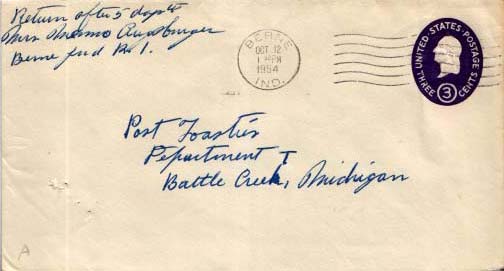 Return after 5 days to
Mrs Augsburger
Berne Ind R 1.
BERNE
OCT 12
1 PM
1954
IND.
UNITED·STATES·POSTAGE
THREE 3 CENTS
Post Toasties
Department T
Battle Creek, Michigan
A